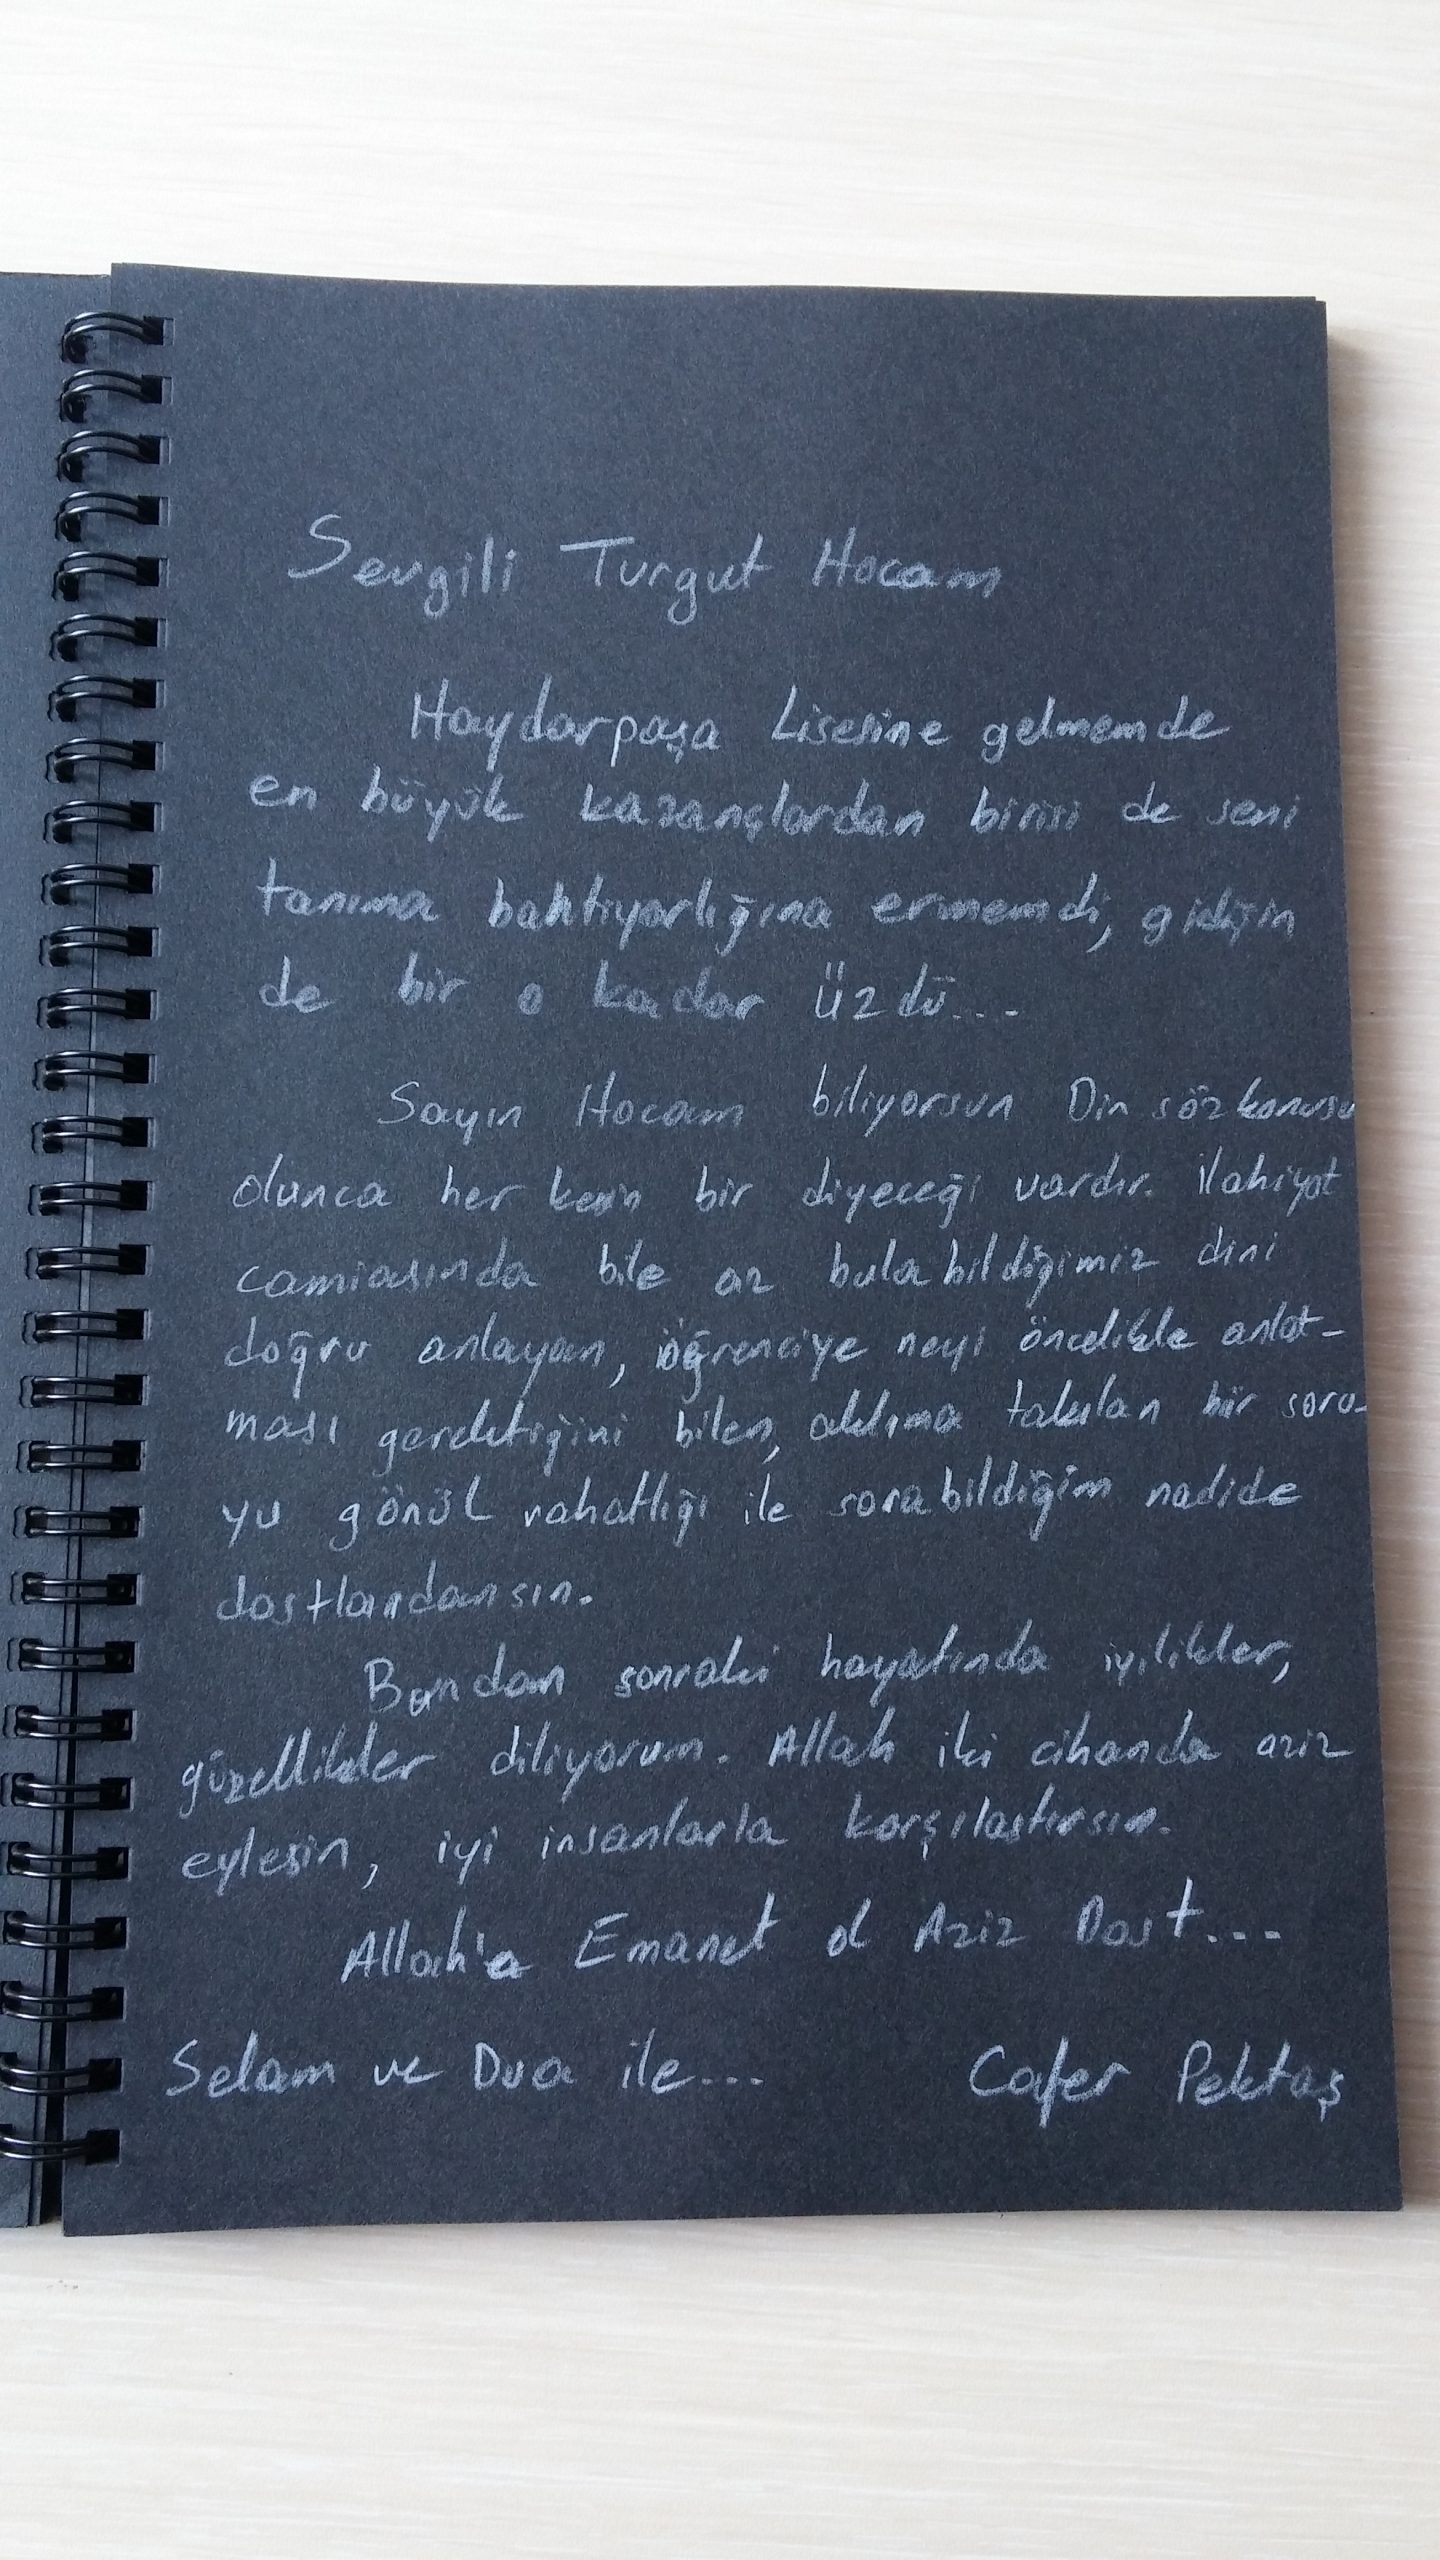 Sevgili Turgut Hocam
Haydarpaşa Lisesine gelmemde
en büyük kazançlardan birisi de seni
tanıma bahtıyarlığına ermemdi, gidişin
de bir o kadar üzdü...
Sayın Hocam biliyorsun Din sözkonusu
olunca her kesin bir diyeceği vardır. İlahiyat
camiasında bile az bulabildiğimiz dini
doğru anlayan, öğrenciye neyi öncelikle anlat-
ması gerektiğini bilen, aklıma takılan bir soru-
yu gönül rahatlığı ile sorabildiğim nadide
dostlardansın.
Bundan sonraki hayatında iyilikler,
güzellikler diliyorum. Allah iki cihanda aziz
eylesin, iyi insanlarla karşılaştırsın.
Allah'a Emanet ol Aziz Dost...
Selam ve Dua ile... Cafer Pektaş